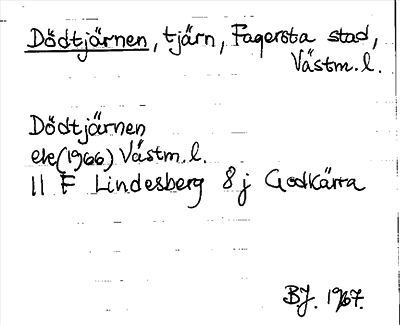 Dödtjärnen, tjärn, Fagersta stad,
Västm.l.
Dödtjärnen
ek (1966) Västm.l.
11 F Lindesberg 8 j Godkärra
BJ. 1967.